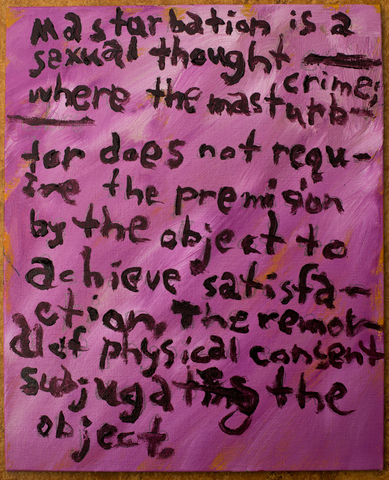 mastarbation is a
sexual thought —
crime;
where the masturb-
tor does not requ-
ire the premision
by the object to
achieve satisfa-
ction. The remov-
al of physical consent
subjugating the
object.